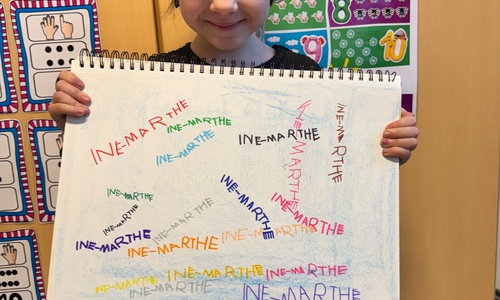 8
9
10
INE-MARTHE
INE-MARTHE
INE-MARTHE
INE-MARTHE
INE-MARTHE
INE-MARTHE
INE-MARTHE
INE-MARTHE
INE-MARTHE
INE-MARTHE
INE-MARTHE
INE-MARTHE
INE-MARTHE
INE-MARTHE
INE-MARTHE
INE-MARTHE
INE-MARTHE
INE-MARTHE
INE-MARTHE